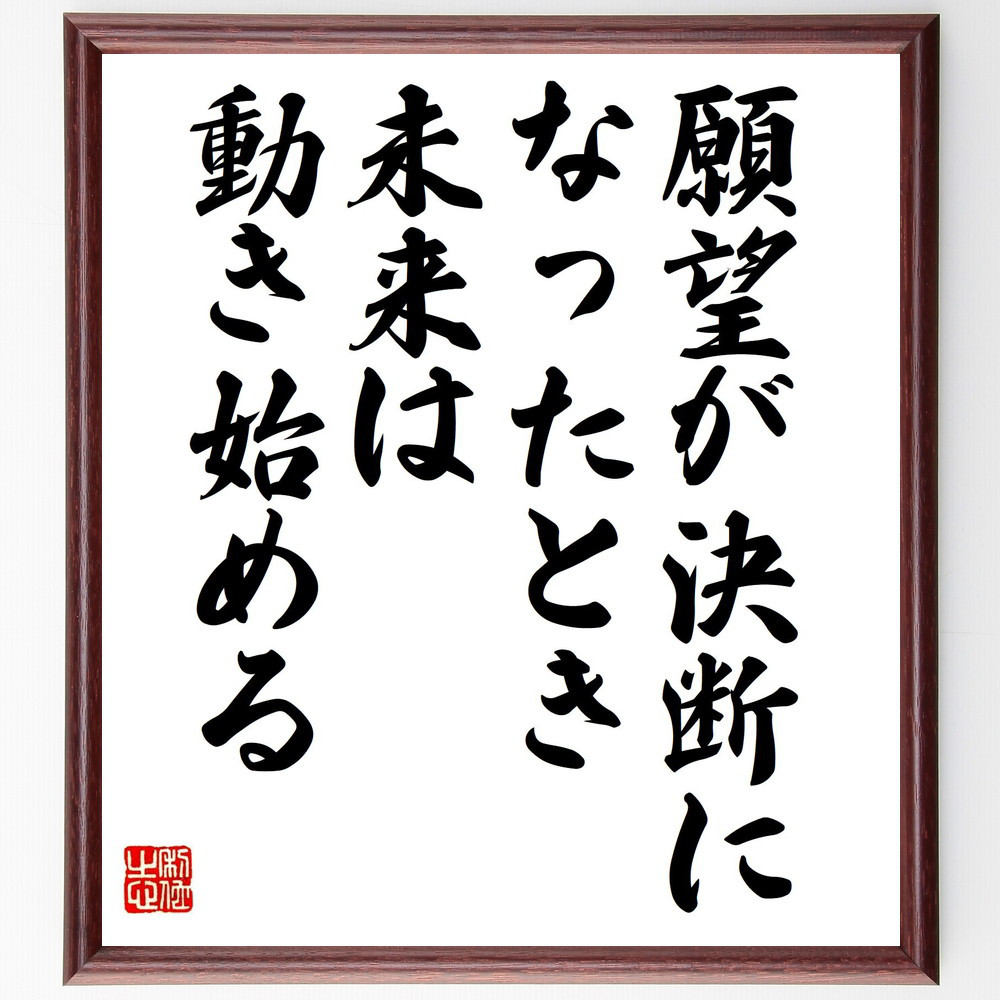 願望が決断に
なったとき
未来は
動き始める